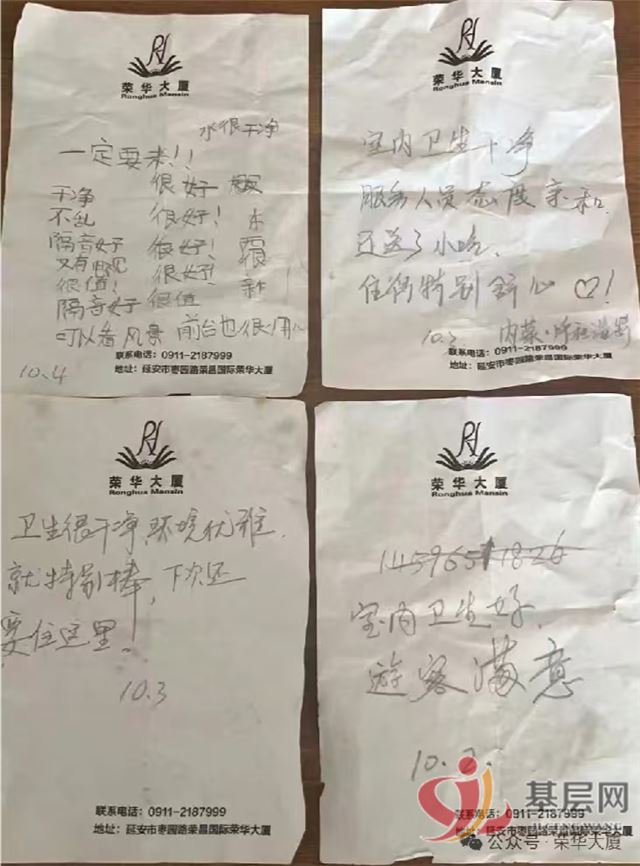 荣华大厦
Ronghua Mansin
水很干净
一定要来!!
干净 很好
不乱 很好!
隔音好 很好!
又有 很好!
很值!
隔音好 很值
可以看风景 前台也很
10.4
联系电话：0911-2187999
地址：延安市枣园路荣昌国际荣华大厦
荣华大厦
Ronghua Mansin
室内卫生干净
服务人员态度亲和.
还送了小吃.
住得特别舒心♡!
10.2 内蒙·
联系电话：0911-2187999
地址：延安市枣园路荣昌国际荣华大厦
荣华大厦
Ronghua Mansin
卫生很干净,环境优雅.
就特别棒,下次还
要住这里!
10.3
联系电话：0911-2187999
地址：延安市枣园路荣昌国际荣华大厦
荣华大厦
Ronghua Mansin
室内卫生好.
遊客满意
10.2.
联系电话：0911-2187999
地址：延安市枣园路荣昌国际荣华大厦
基层网
JICENGWANG
公众号·荣华大厦